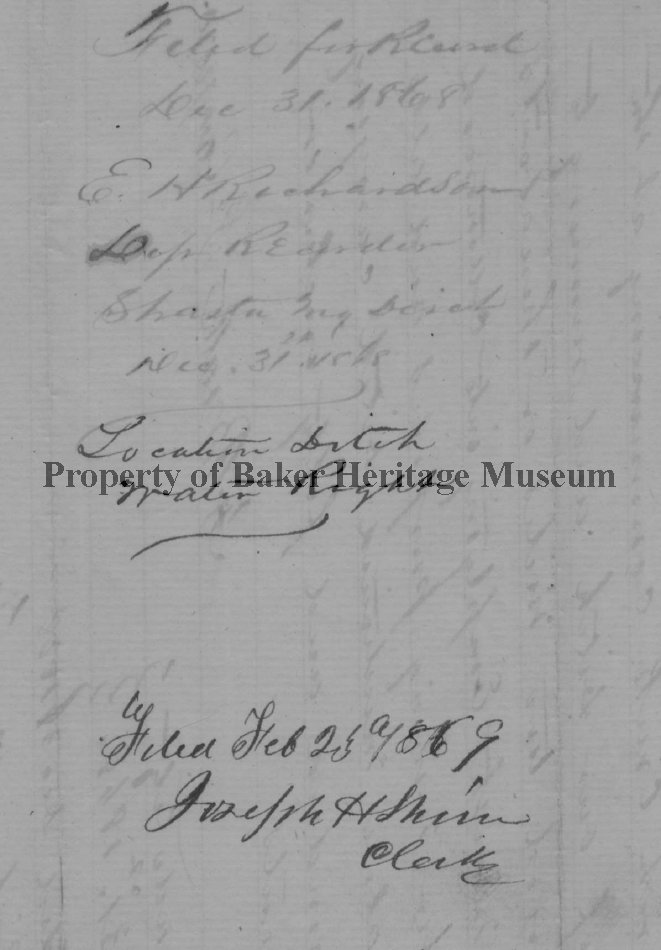 Filed for Record
Dec 31. 1868
E. H Richardson
Dep Recorder
Shasta Mg Disct
Dec. 31st 1868
Location Ditch
Property of Baker Heritage Museum
Water Right
Filed Feb 1869
Joseph H Shinn
Clerk